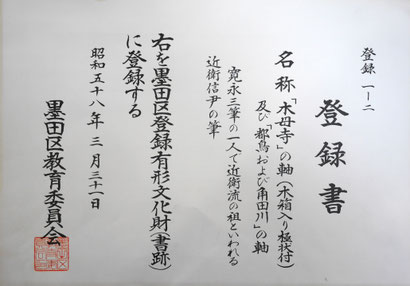 登録 一ー二
登録書
名称「木母寺」の軸(木箱入り極状付)
及び「都鳥および角田川」の軸
寛永三筆の一人で近衛流の祖といわれる
近衛信尹の筆
右を墨田区登録有形文化財(書跡)
に登録する
昭和五十八年三月三十一日
墨田区教育委員会